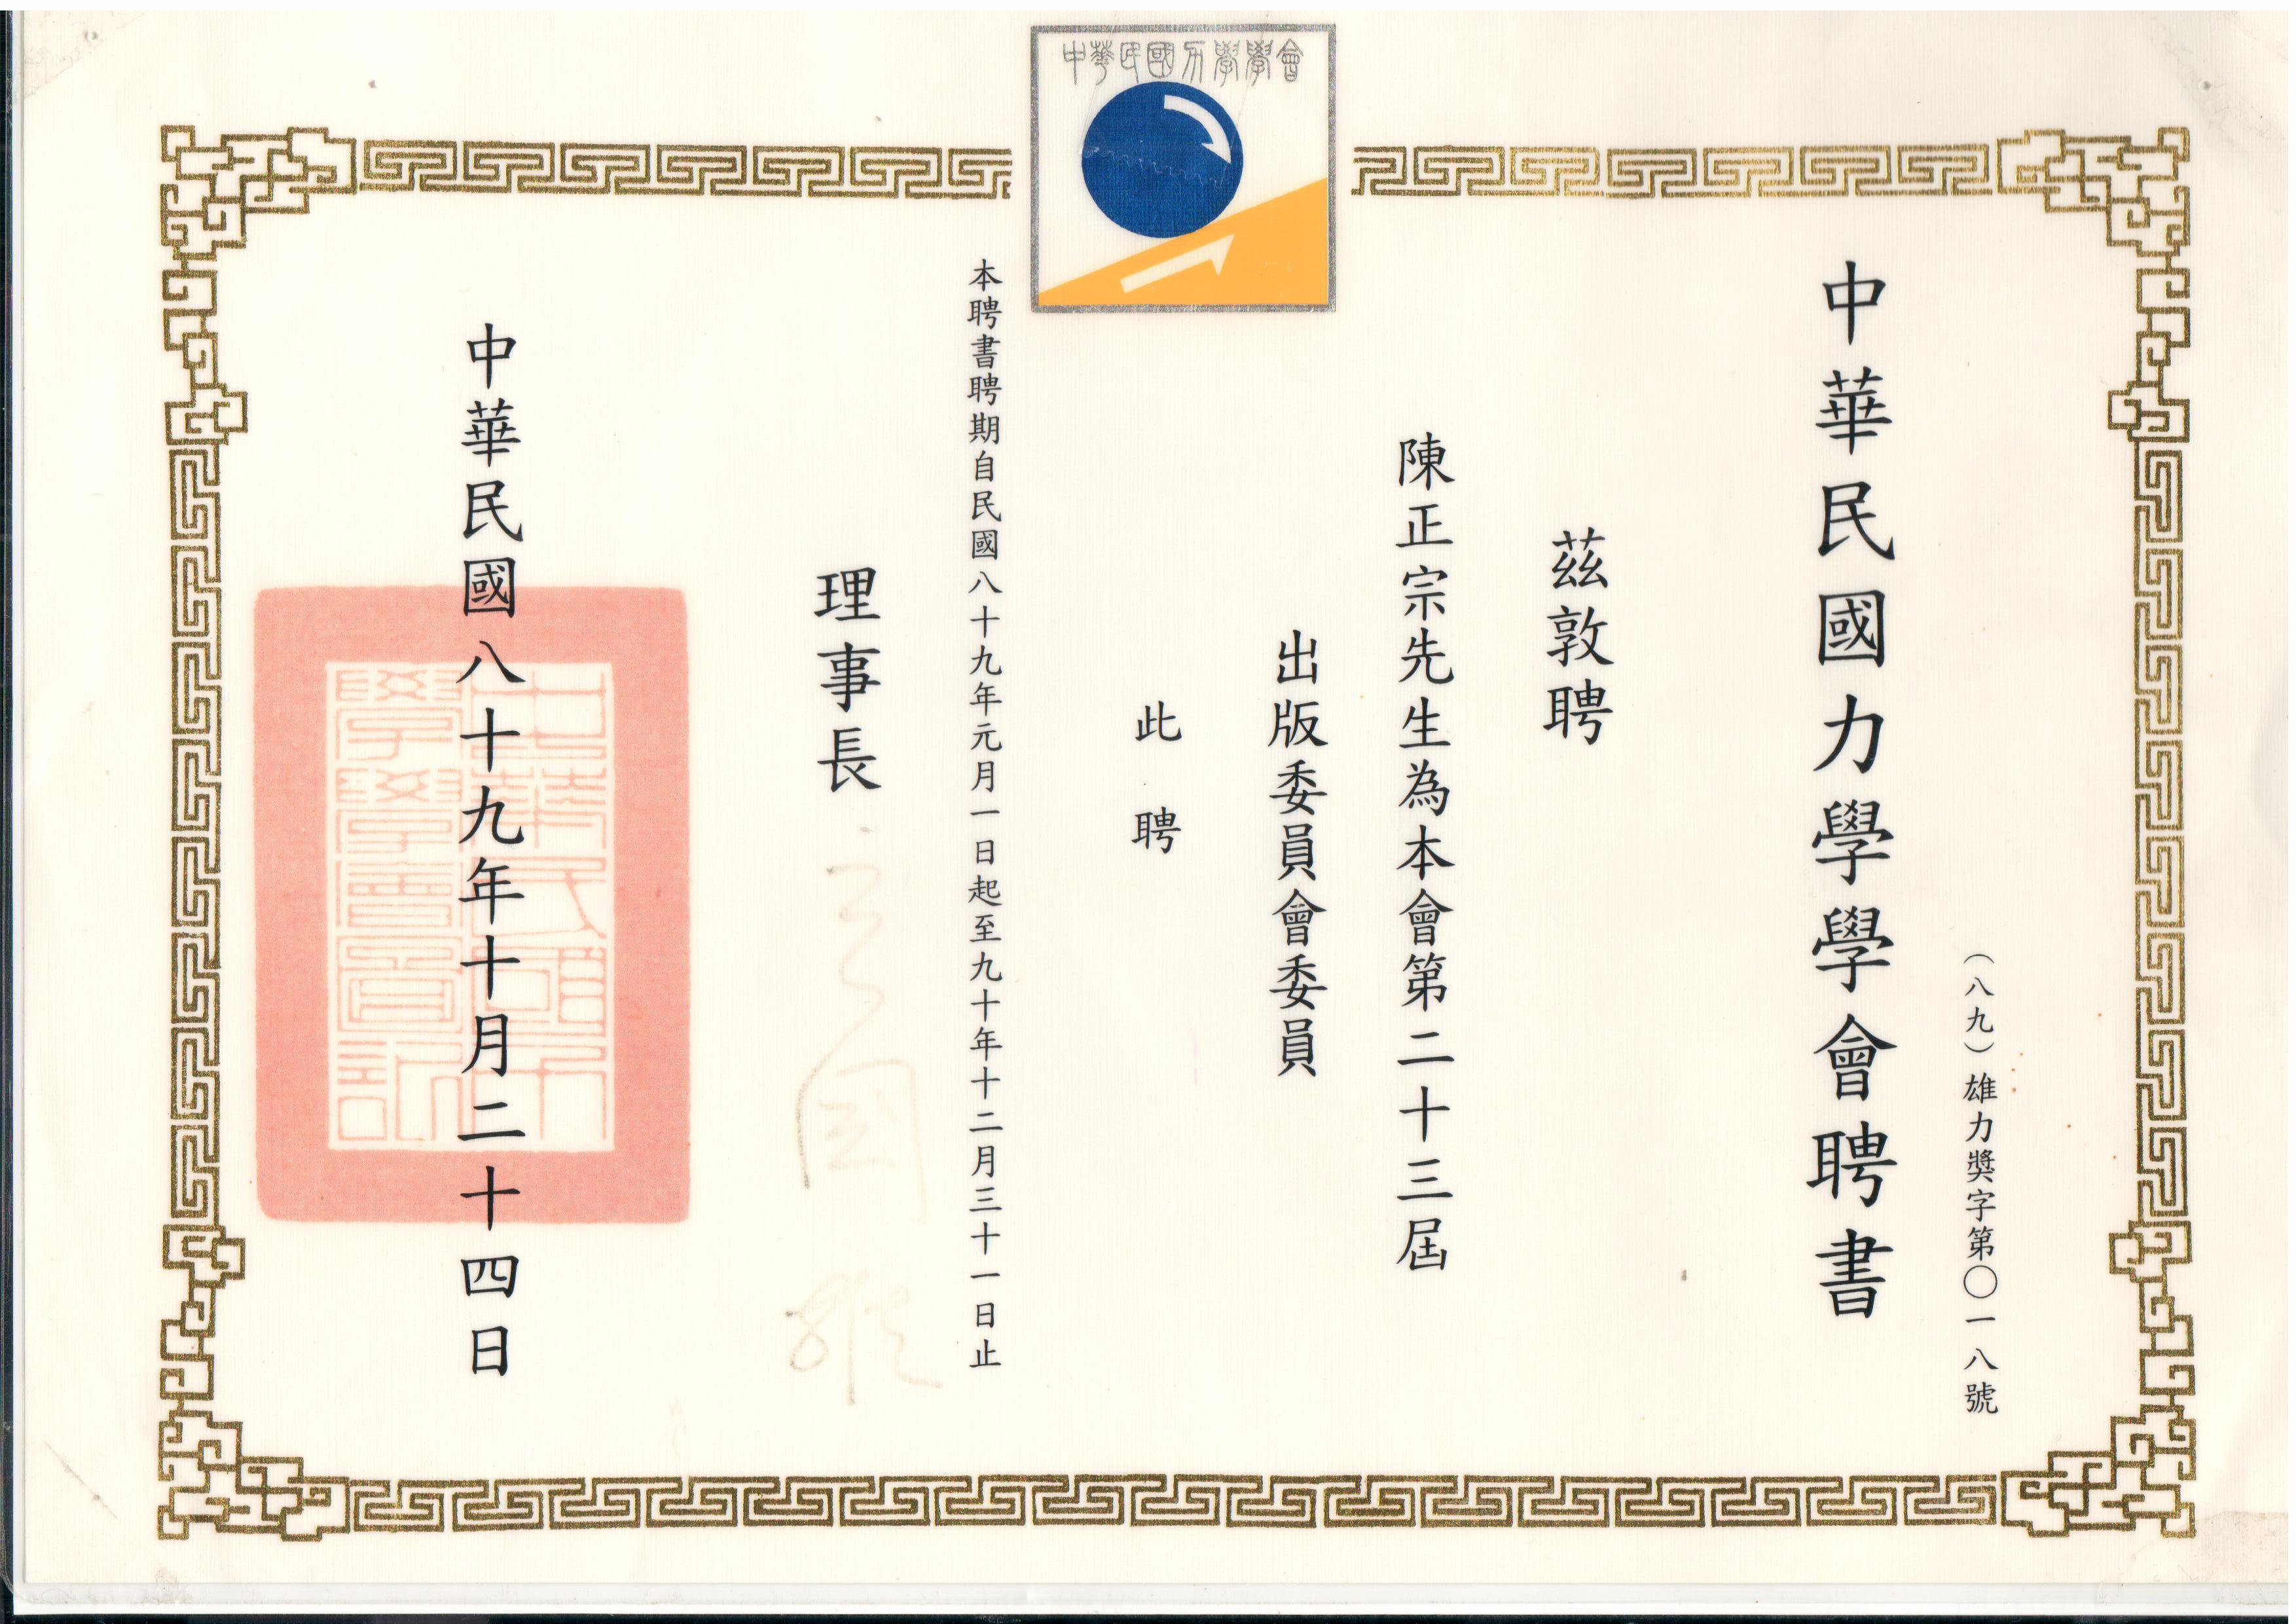 中華民國力學學會
中華民國力學學會聘書
（八九）雄力獎字第〇一八號
茲敦聘
陳正宗先生為本會第二十三屆
出版委員會委員
此聘
本聘書聘期自民國八十九年元月一日起至九十年十二月三十一日止
理事長
中華民國八十九年十月二十四日
中華民國力
學學會會印